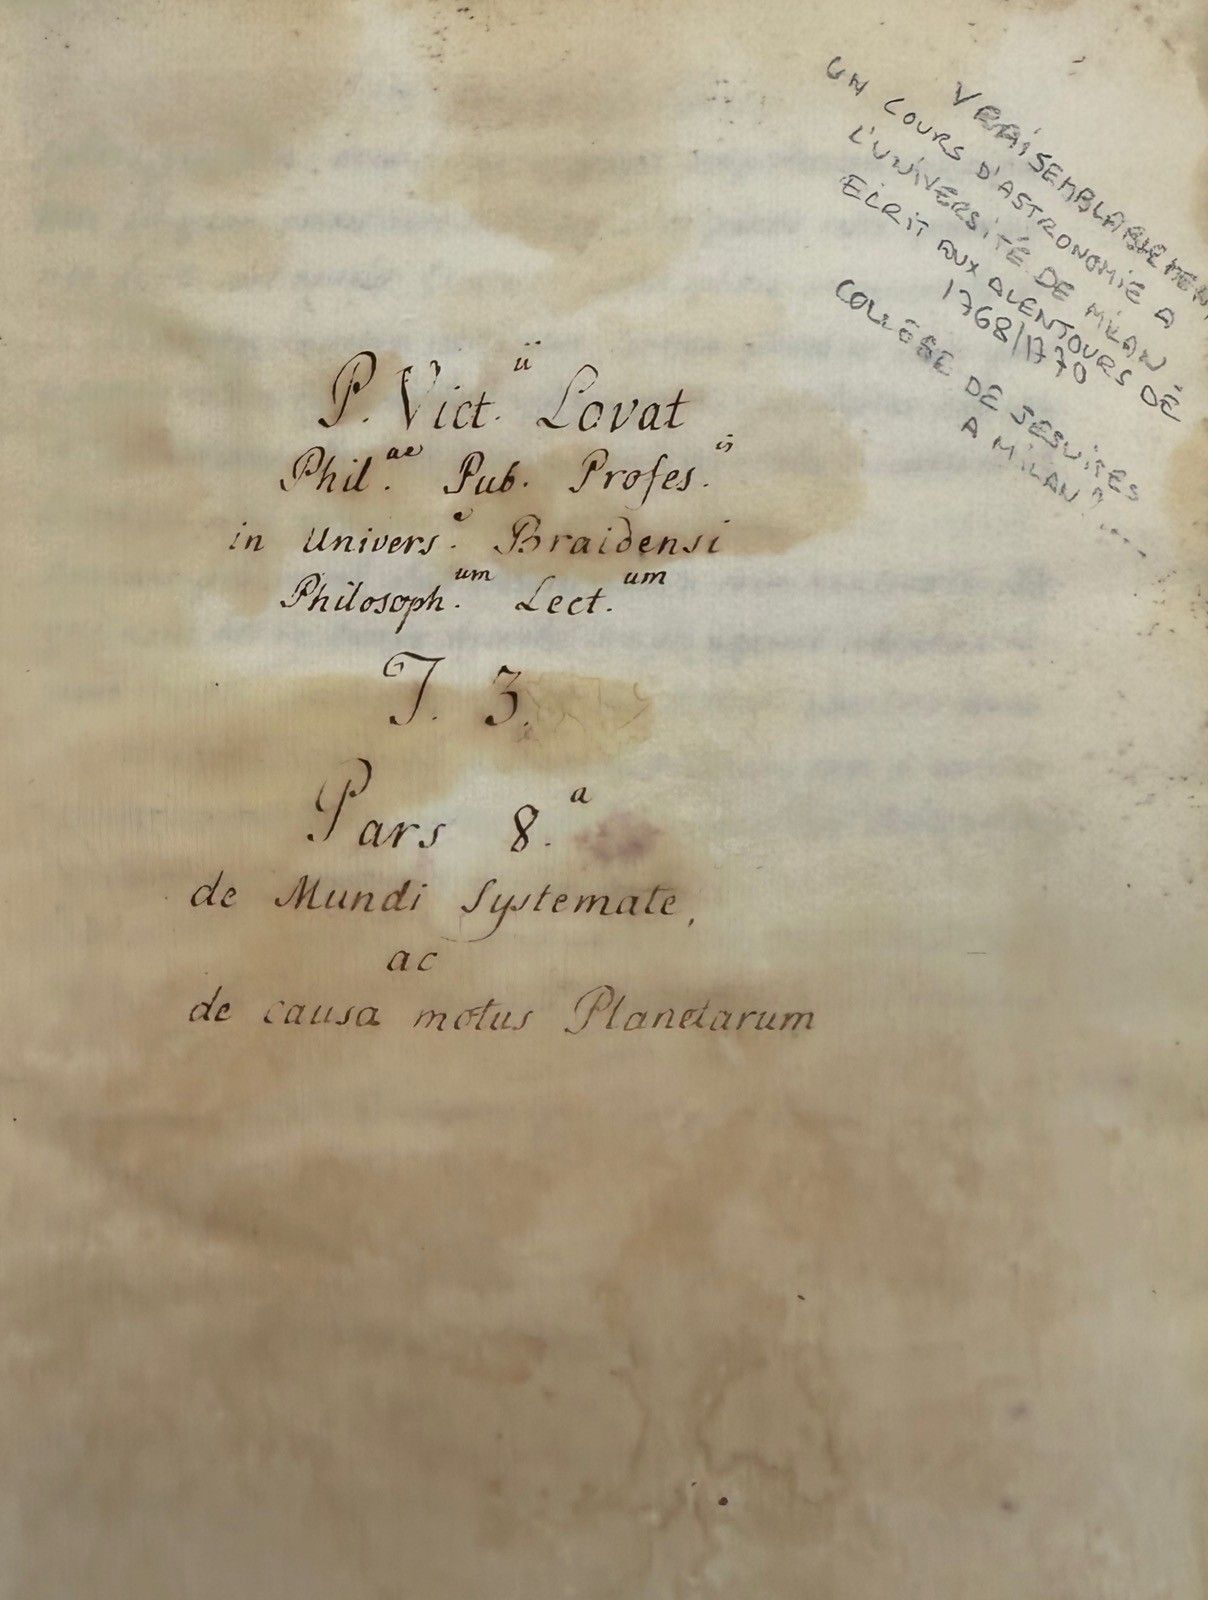 VRAISEMBLABLEMENT
UN COURS D'ASTRONOMIE A
L'UNIVERSITÉ DE MILAN
ECRIT AUX ALENTOURS DE
1768/1770
COLLÈGE DE JESUITES
A MILAN ?....
P. Vict.ii Lovat
Phil.ae Pub. Profes.is
in Univers.e Braidensi
Philosoph.um Lect.um
T. 3.
Pars 8.a
de Mundi Systemate,
ac
de causa motus Planetarum